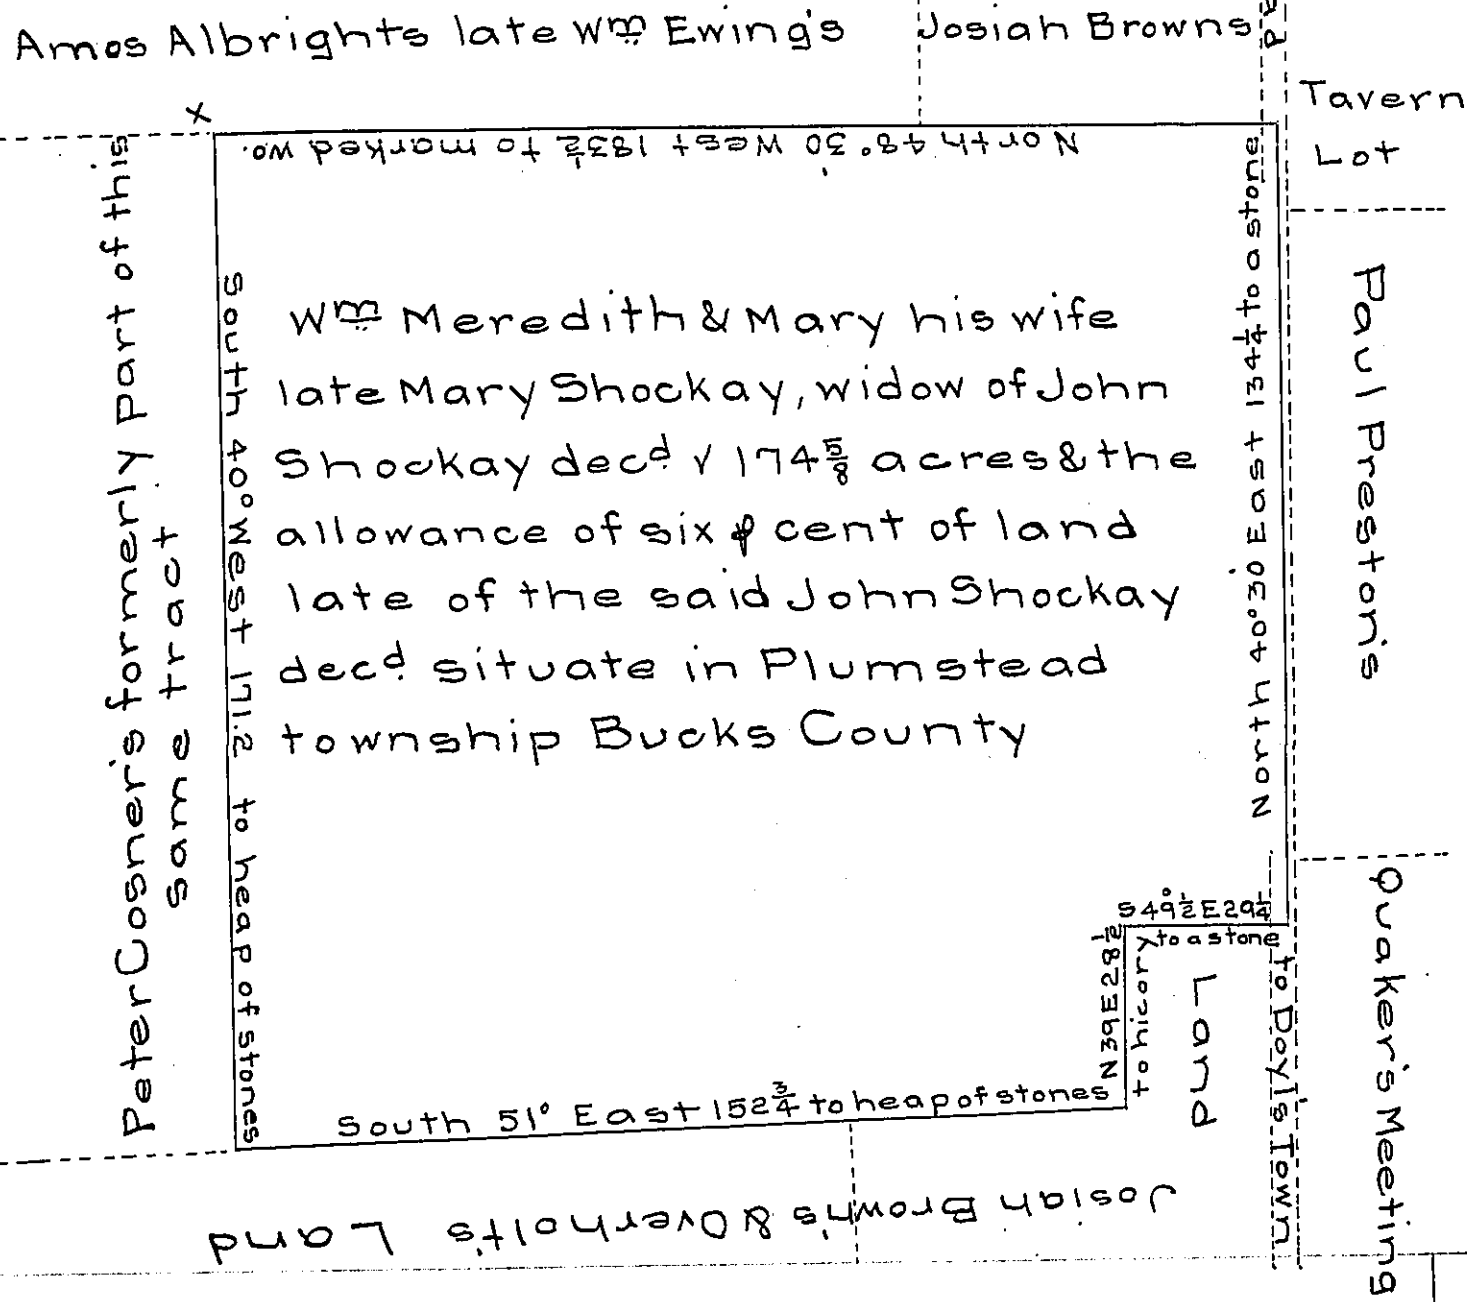 Amos Albrights late Wm Ewing's
Josiah Browns
Tavern
Lot
North 48°30' West 183½ to marked wo.
Peter Cosner's formerly part of this
same tract
South 40° West 171.2 to heap of stones
Wm Meredith & Mary his wife
late Mary Shockay, widow of John
Shockay decd √ 174⅝ acres & the
allowance of six ⅌ cent of land
late of the said John Shockay
decd situate in Plumstead
township Bucks County
North 40°30' East 134¼ to a stone
Paul Preston's
S 49°½ E 29¼
to a stone
N 39 E 28½
to hicory
Land
to Doyl's Town
Quaker's Meeting
South 51° East 152¾ to heap of stones
Josiah Brown's & Overholt's Land
X